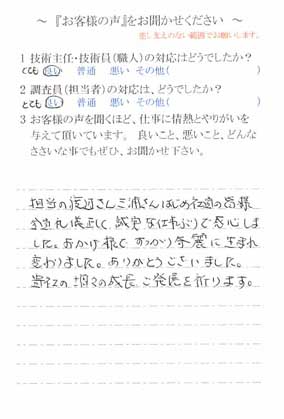 ～『お客様の声』をお聞かせください ～
差し支えのない範囲でお願いします。
1 技術主任・技術員(職人)の対応はどうでしたか?
とても 良い 普通 悪い その他( )
2 調査員(担当者)の対応は、どうでしたか?
とても 良い 普通 悪い その他( )
3 お客様の声を聞くほど、仕事に情熱とやりがいを
与えて頂いています。 良いこと、悪いこと、どんな
ささいな事でもぜひ、お聞かせ下さい。
担当の渡辺さん三浦さんはじめ社道の皆様
礼儀正しく 誠実な仕事ぶりで感心しま
した。おかげ様で すっかり 綺麗に 生まれ
変わりました。ありがとうございました。
貴社の 増々の成長 ご発展を祈ります。